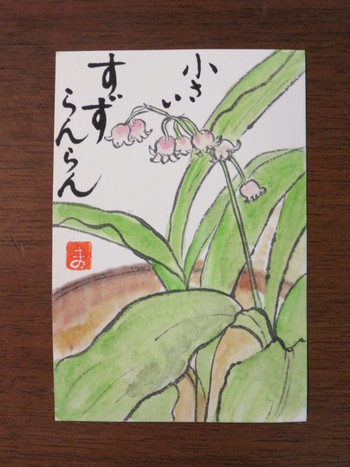 小さい
すず
らんらん
ま